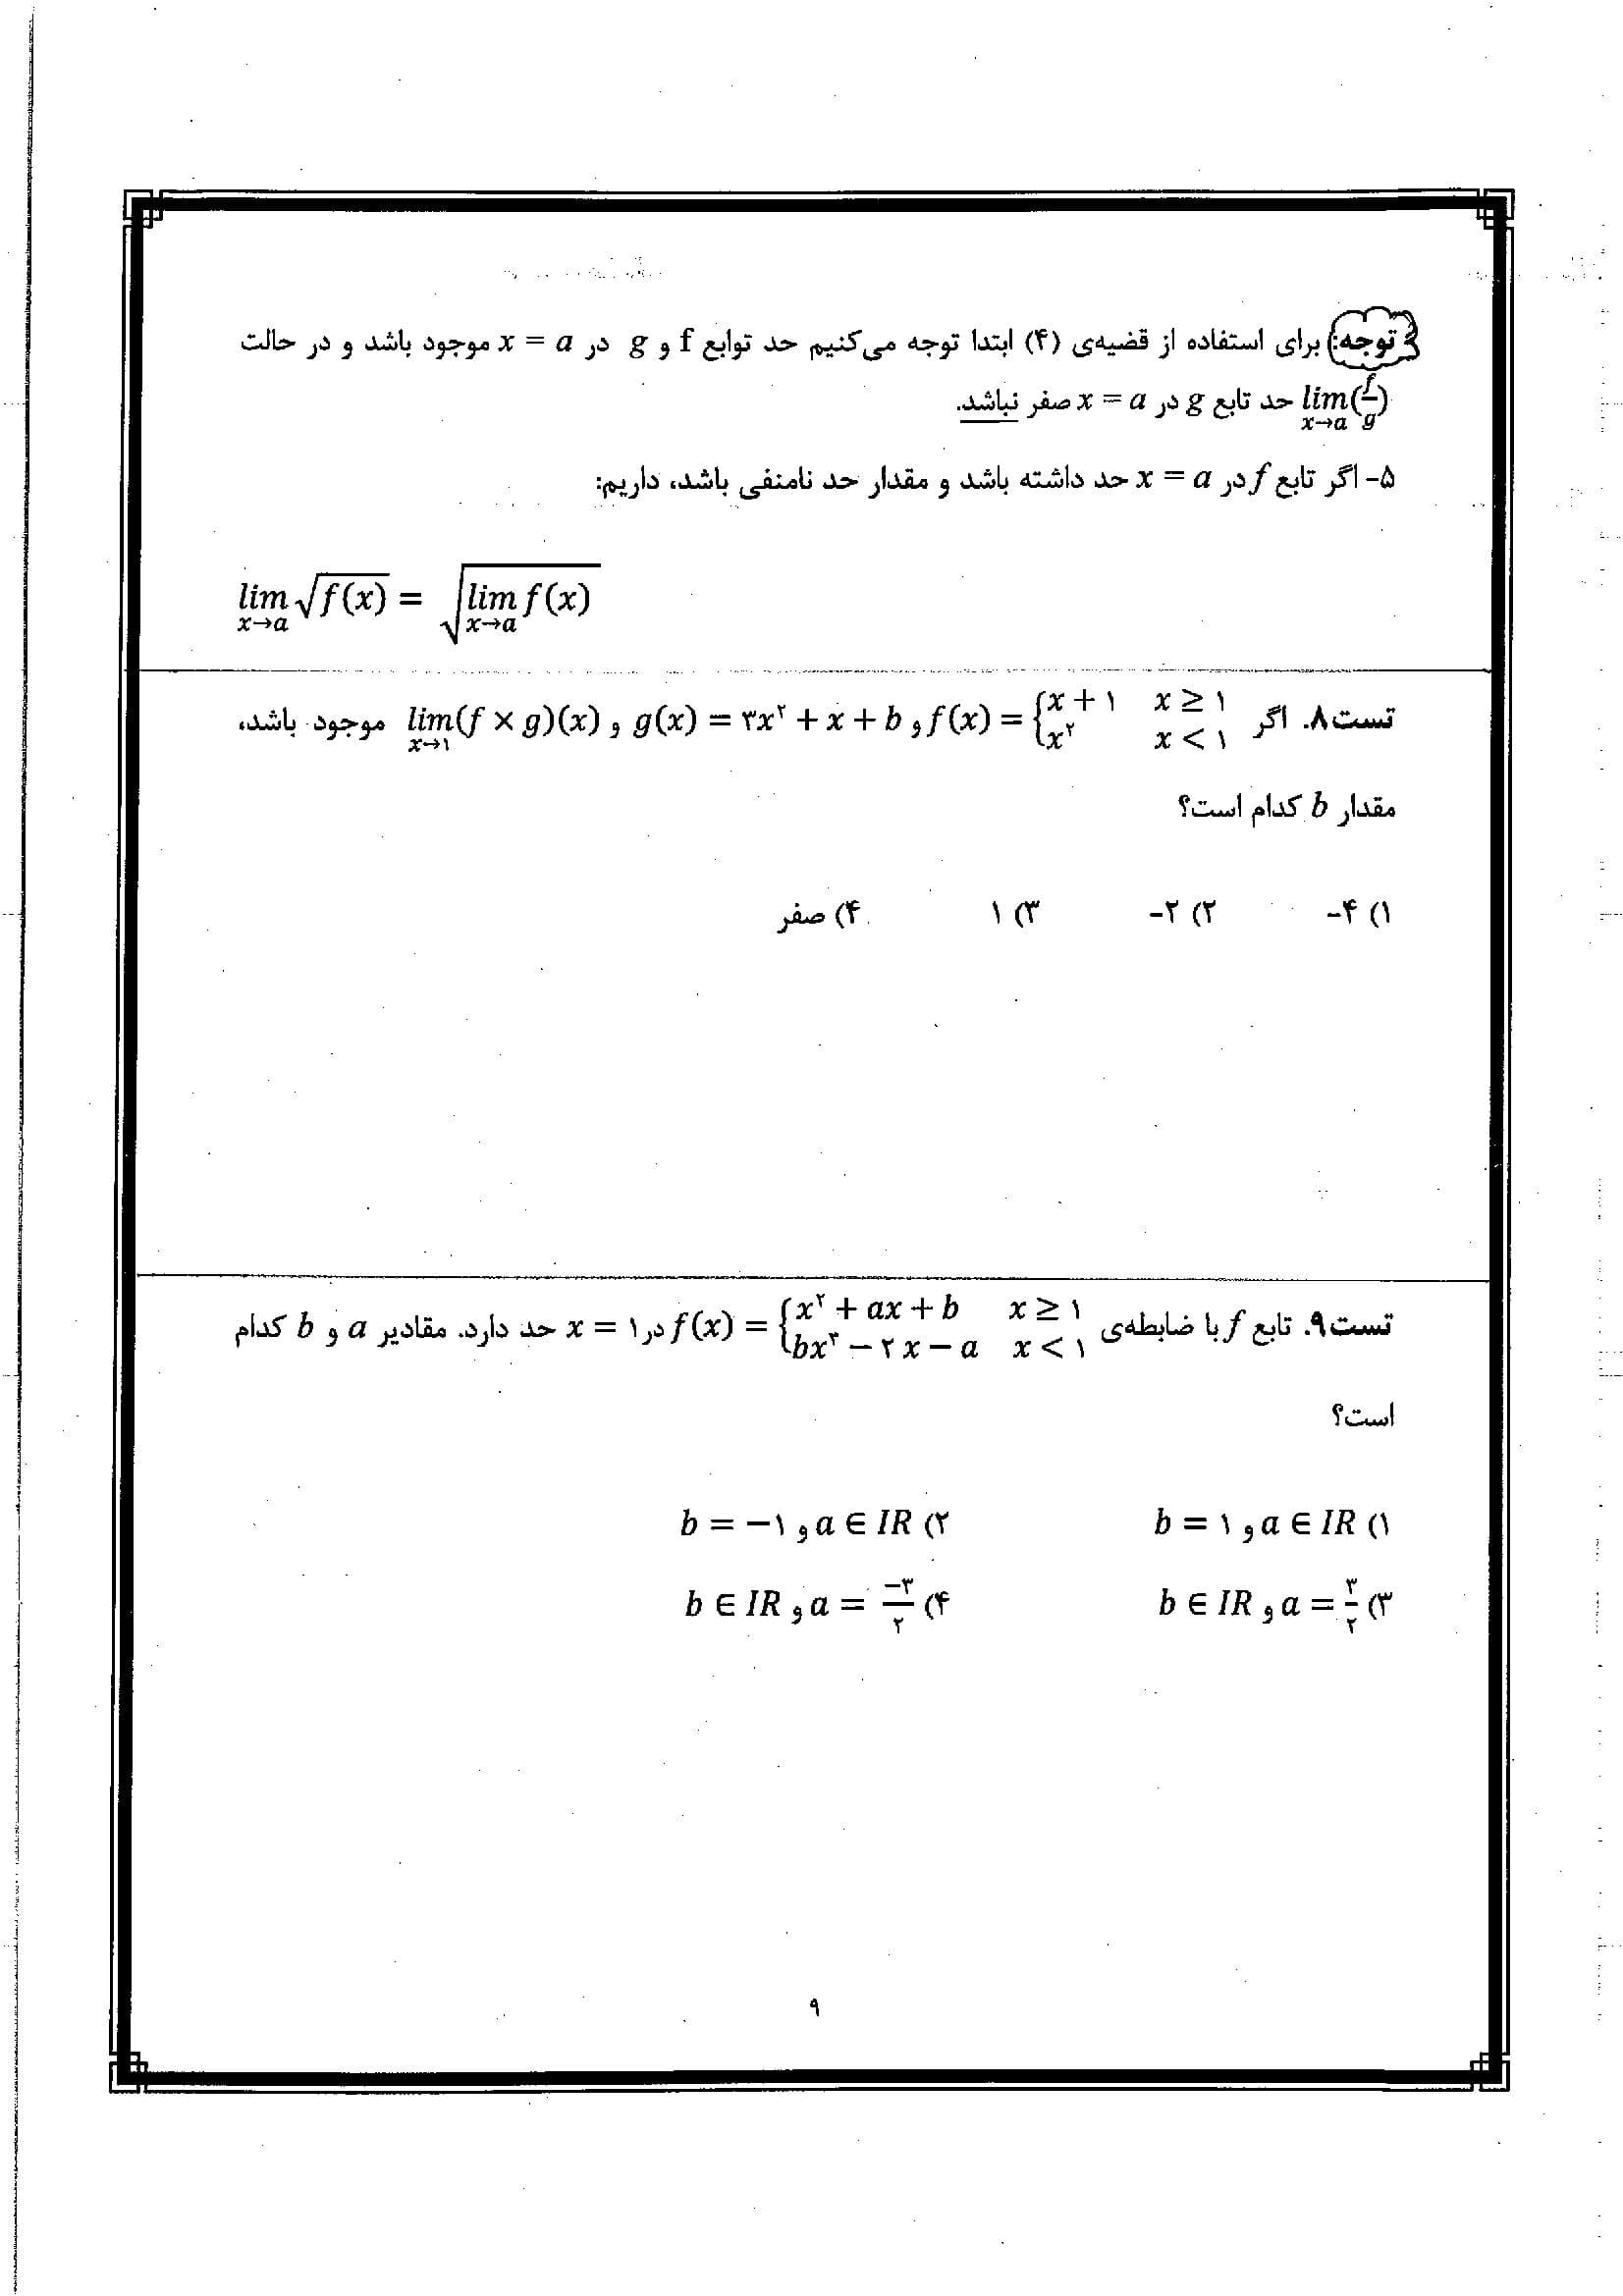 توجه: برای استفاده از قضیه‌ی (۴) ابتدا توجه می‌کنیم حد توابع f و g در x = a موجود باشد و در حالت
lim(f/g) x→a حد تابع g در x = a صفر نباشد.
۵- اگر تابع f در x = a حد داشته باشد و مقدار حد نامنفی باشد، داریم:
lim x→a √f(x) = √(lim x→a f(x))
تست۸. اگر f(x) = { x + ۱ x ≥ ۱ ; x۲ x < ۱ و g(x) = ۳x۲ + x + b و lim x→۱ (f × g)(x) موجود باشد،
مقدار b کدام است؟
۱) ۴- ۲) ۲- ۳) ۱ ۴) صفر
تست۹. تابع f با ضابطه‌ی f(x) = { x۲ + ax + b x ≥ ۱ ; bx۳ − ۲x − a x < ۱ در x = ۱ حد دارد. مقادیر a و b کدام
است؟
۱) a ∈ IR و b = ۱ ۲) a ∈ IR و b = −۱
۳) a = ۳/۲ و b ∈ IR ۴) a = −۳/۲ و b ∈ IR
۹